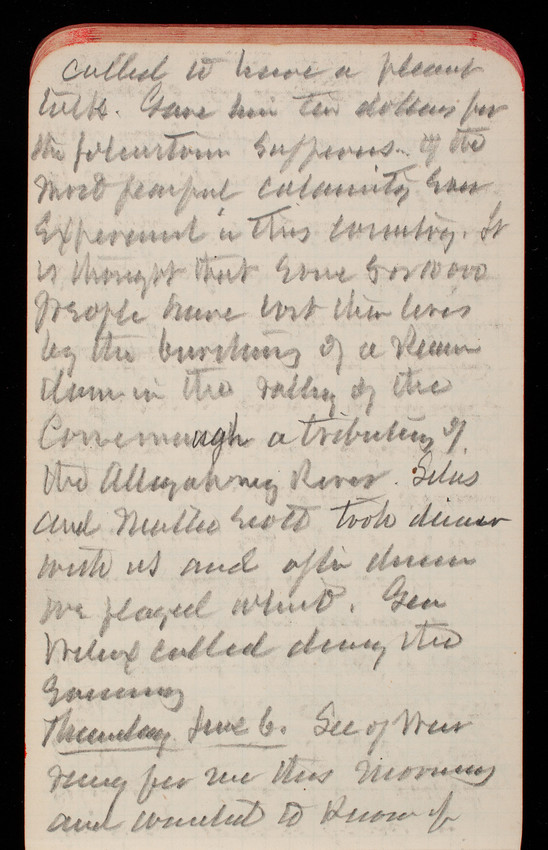 called to have a pleasant
talk. Gave him ten dollars for
the Johnstown sufferers. of the
most fearful calamity ever
experienced in this country. It
is thought that some 5 or 10 000
people have lost their lives
by the bursting of a
dam in the valley of the
Connemaugh a tributary of
the Alleghany River. Silas
and Mattie Scott took dinner
with us and after dinner
we played whist. Gen
Wilcox called during the
Evening
Thursday June 6. Sec of War
rang for me this morning
and wanted to know if